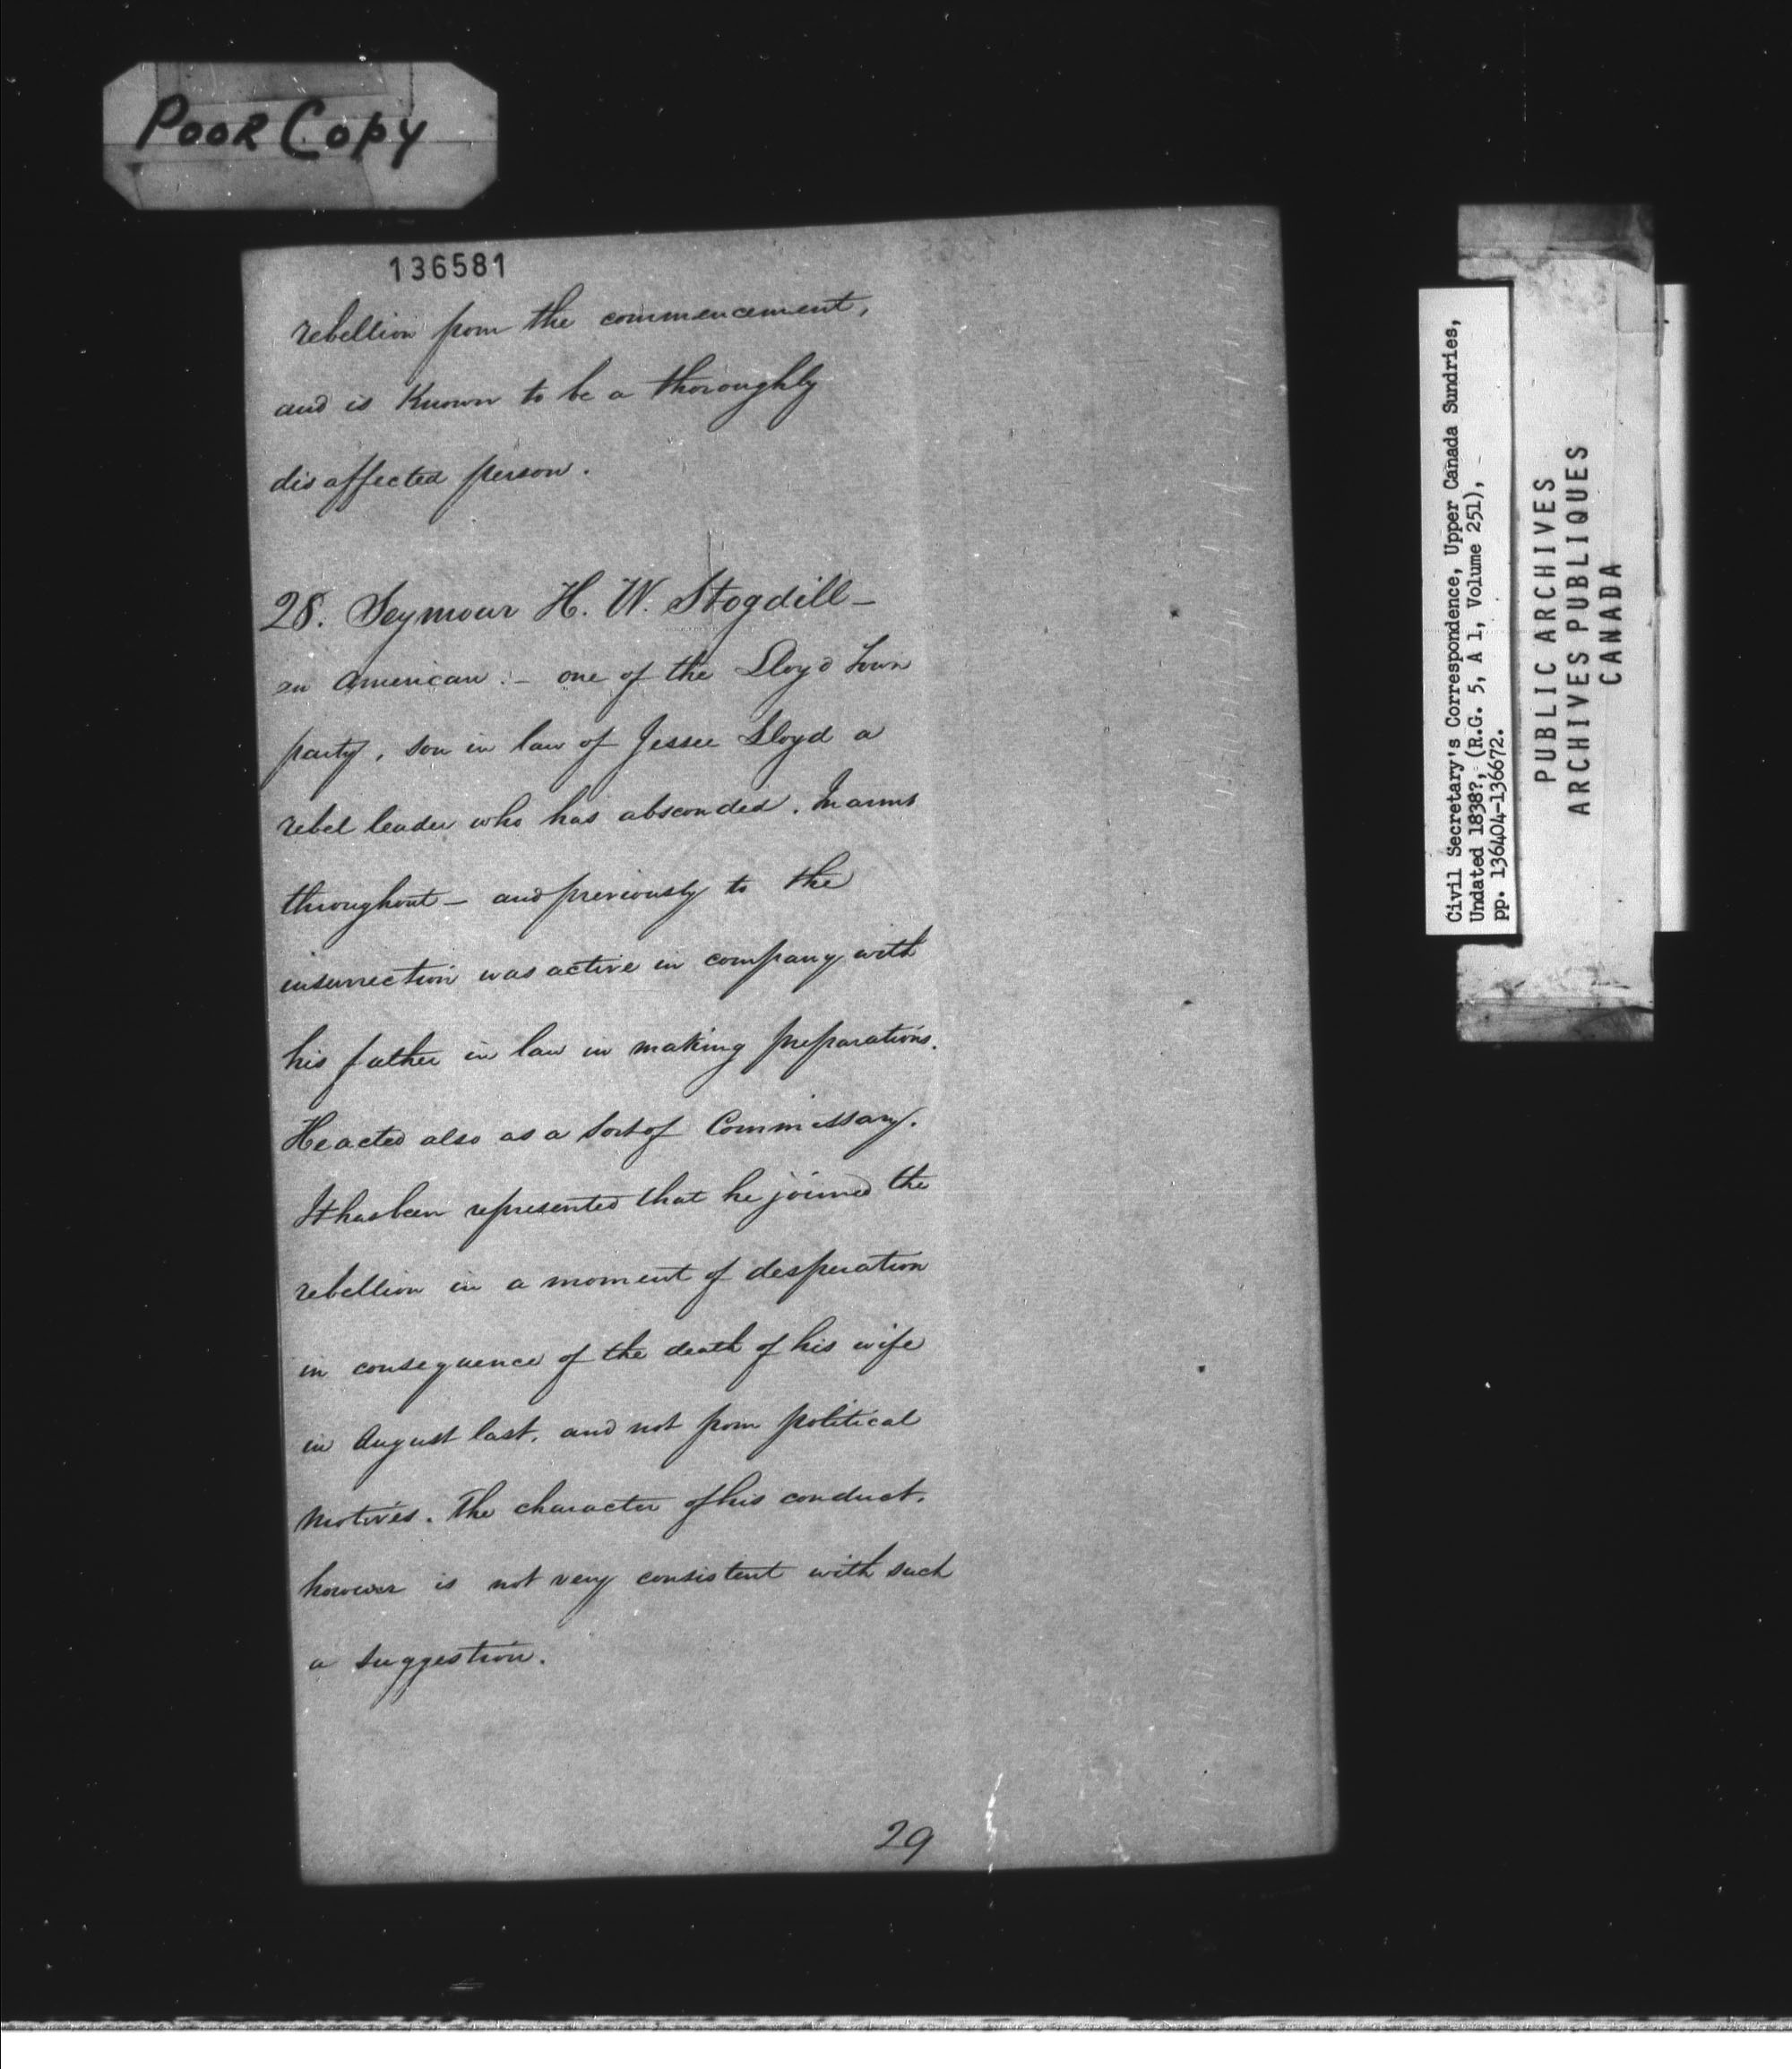 Poor Copy
136581
rebellion from the commencement,
and is Known to be a thoroughly
disaffected person.
28. Seymour H. W. Stogdill —
an American. — one of the Lloyd Town
party, son in law of Jesse Lloyd a
rebel leader who has absconded. In arms
throughout — and previously to the
insurrection was active in company with
his father in law in making preparations.
He acted also as a Sort of Commissary.
It has been represented that he joined the
rebellion in a moment of desperation
in consequence of the death of his wife
in August last, and not from political
motives. The character of his conduct,
however is not very consistent with such
a suggestion.
29
Civil Secretary's Correspondence, Upper Canada Sundries,
Undated 1838?, (R.G. 5, A 1, Volume 251),
pp. 136404-136672.
PUBLIC ARCHIVES
ARCHIVES PUBLIQUES
CANADA